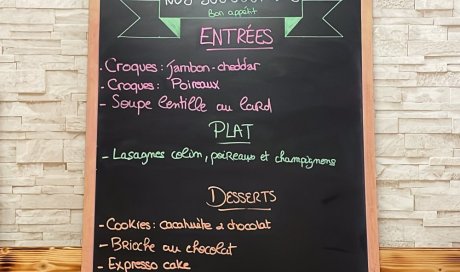 Bon appétit
ENTRÉES
- Croques : Jambon-cheddar
- Croques : Poireaux
- Soupe lentille au lard
PLAT
- Lasagnes colin, poireaux et champignons
DESSERTS
- Cookies : cacahuète & chocolat
- Brioche au chocolat
- Expresso cake